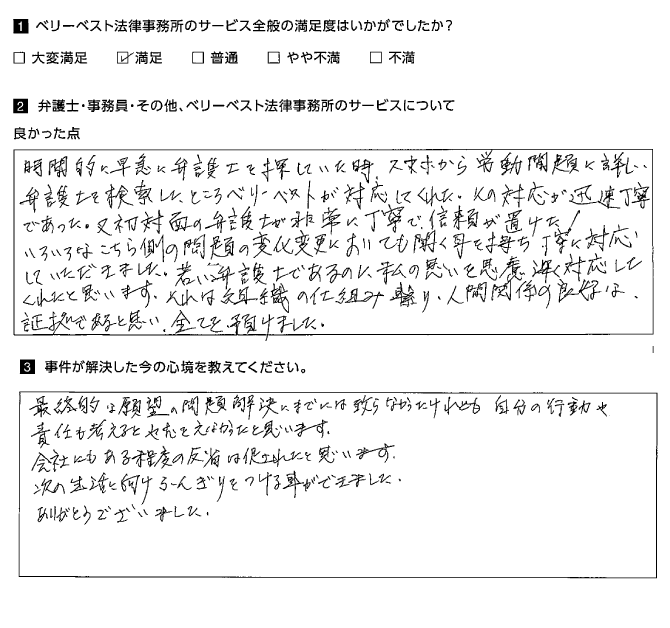 1 ベリーベスト法律事務所のサービス全般の満足度はいかがでしたか?
□ 大変満足 ☑ 満足 □ 普通 □ やや不満 □ 不満
2 弁護士・事務員・その他、ベリーベスト法律事務所のサービスについて
良かった点
時間的に早急に弁護士を探していた時、スマホから労働問題に詳しい
弁護士を検索したところベリーベストが対応してくれた。その対応が迅速丁寧
であった。又初対面の弁護士が非常に丁寧で、信頼が置けた!
いろいろなこちら側の問題の変化変更においても聞く耳を持ち丁寧に対応
していただきました。若い弁護士であるのに私の思いを思慮深く対応した
くれたと思います。それは組織の仕組み繋り、人間関係の良好は、
証拠であると思い、全てを預けました。
3 事件が解決した今の心境を教えてください。
最終的な願望の問題解決にまでには致らなかったけれども 自分の行動や
責任も考えると
会社にもある程度の反省は促されたと思います。
次の生活に向けるふんぎりをつける事ができました。
ありがとうございました。